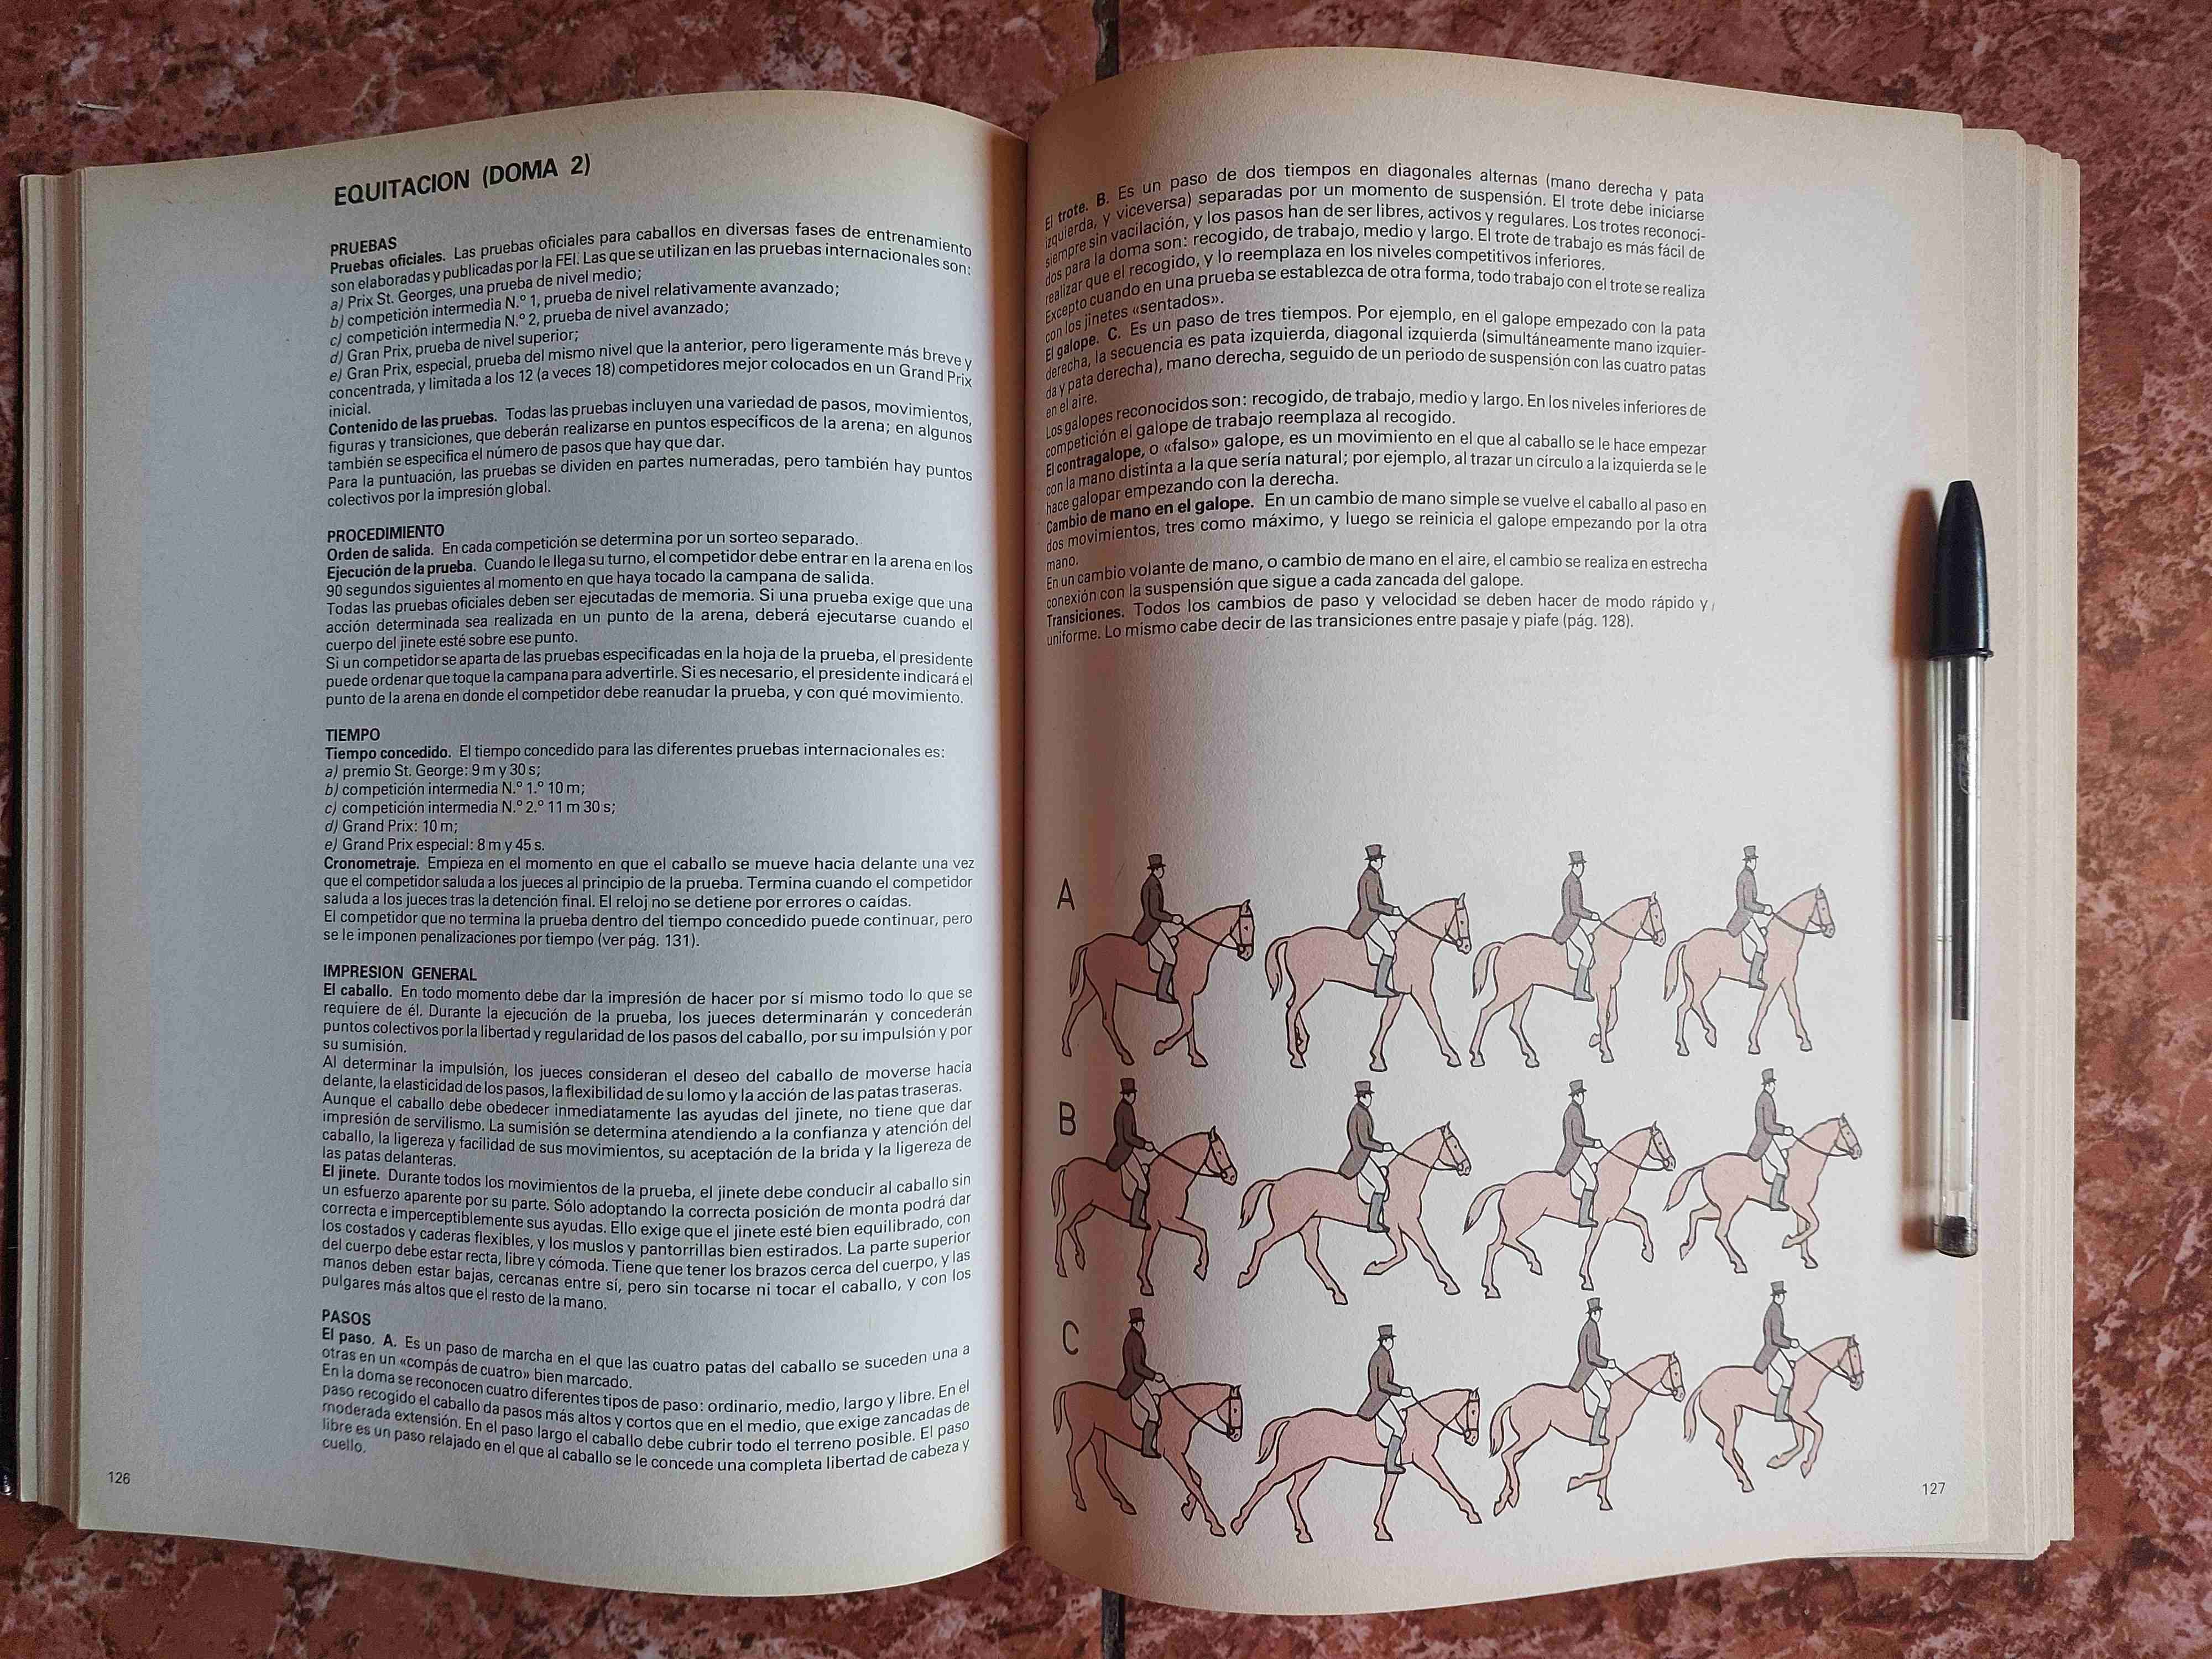 EQUITACION (DOMA 2)
PRUEBAS
Pruebas oficiales. Las pruebas oficiales para caballos en diversas fases de entrenamiento
son elaboradas y publicadas por la FEI. Las que se utilizan en las pruebas internacionales son:
a) Prix St. Georges, una prueba de nivel medio;
b) competición intermedia N.º 1, prueba de nivel relativamente avanzado;
c) competición intermedia N.º 2, prueba de nivel avanzado;
d) Gran Prix, prueba de nivel superior;
e) Gran Prix, especial, prueba del mismo nivel que la anterior, pero ligeramente más breve y
concentrada, y limitada a los 12 (a veces 18) competidores mejor colocados en un Grand Prix
inicial.
Contenido de las pruebas. Todas las pruebas incluyen una variedad de pasos, movimientos,
figuras y transiciones, que deberán realizarse en puntos específicos de la arena; en algunos
también se especifica el número de pasos que hay que dar.
Para la puntuación, las pruebas se dividen en partes numeradas, pero también hay puntos
colectivos por la impresión global.
PROCEDIMIENTO
Orden de salida. En cada competición se determina por un sorteo separado.
Ejecución de la prueba. Cuando le llega su turno, el competidor debe entrar en la arena en los
90 segundos siguientes al momento en que haya tocado la campana de salida.
Todas las pruebas oficiales deben ser ejecutadas de memoria. Si una prueba exige que una
acción determinada sea realizada en un punto de la arena, deberá ejecutarse cuando el
cuerpo del jinete esté sobre ese punto.
Si un competidor se aparta de las pruebas especificadas en la hoja de la prueba, el presidente
puede ordenar que toque la campana para advertirle. Si es necesario, el presidente indicará el
punto de la arena en donde el competidor debe reanudar la prueba, y con qué movimiento.
TIEMPO
Tiempo concedido. El tiempo concedido para las diferentes pruebas internacionales es:
a) premio St. George: 9 m y 30 s;
b) competición intermedia N.º 1.º 10 m;
c) competición intermedia N.º 2.º 11 m 30 s;
d) Grand Prix: 10 m;
e) Grand Prix especial: 8 m y 45 s.
Cronometraje. Empieza en el momento en que el caballo se mueve hacia delante una vez
que el competidor saluda a los jueces al principio de la prueba. Termina cuando el competidor
saluda a los jueces tras la detención final. El reloj no se detiene por errores o caídas.
El competidor que no termina la prueba dentro del tiempo concedido puede continuar, pero
se le imponen penalizaciones por tiempo (ver pág. 131).
IMPRESION GENERAL
El caballo. En todo momento debe dar la impresión de hacer por sí mismo todo lo que se
requiere de él. Durante la ejecución de la prueba, los jueces determinarán y concederán
puntos colectivos por la libertad y regularidad de los pasos del caballo, por su impulsión y por
su sumisión.
Al determinar la impulsión, los jueces consideran el deseo del caballo de moverse hacia
delante, la elasticidad de los pasos, la flexibilidad de su lomo y la acción de las patas traseras.
Aunque el caballo debe obedecer inmediatamente las ayudas del jinete, no tiene que dar
impresión de servilismo. La sumisión se determina atendiendo a la confianza y atención del
caballo, la ligereza y facilidad de sus movimientos, su aceptación de la brida y la ligereza de
las patas delanteras.
El jinete. Durante todos los movimientos de la prueba, el jinete debe conducir al caballo sin
un esfuerzo aparente por su parte. Sólo adoptando la correcta posición de monta podrá dar
correcta e imperceptiblemente sus ayudas. Ello exige que el jinete esté bien equilibrado, con
los costados y caderas flexibles, y los muslos y pantorrillas bien estirados. La parte superior
del cuerpo debe estar recta, libre y cómoda. Tiene que tener los brazos cerca del cuerpo, y las
manos deben estar bajas, cercanas entre sí, pero sin tocarse ni tocar el caballo, y con los
pulgares más altos que el resto de la mano.
PASOS
El paso. A. Es un paso de marcha en el que las cuatro patas del caballo se suceden una a
otras en un «compás de cuatro» bien marcado.
En la doma se reconocen cuatro diferentes tipos de paso: ordinario, medio, largo y libre. En el
paso recogido el caballo da pasos más altos y cortos que en el medio, que exige zancadas de
moderada extensión. En el paso largo el caballo debe cubrir todo el terreno posible. El paso
libre es un paso relajado en el que al caballo se le concede una completa libertad de cabeza y
cuello.
126
El trote. B. Es un paso de dos tiempos en diagonales alternas (mano derecha y pata
izquierda, y viceversa) separadas por un momento de suspensión. El trote debe iniciarse
siempre sin vacilación, y los pasos han de ser libres, activos y regulares. Los trotes reconoci-
dos para la doma son: recogido, de trabajo, medio y largo. El trote de trabajo es más fácil de
realizar que el recogido, y lo reemplaza en los niveles competitivos inferiores.
Excepto cuando en una prueba se establezca de otra forma, todo trabajo con el trote se realiza
con los jinetes «sentados».
El galope. C. Es un paso de tres tiempos. Por ejemplo, en el galope empezado con la pata
derecha, la secuencia es pata izquierda, diagonal izquierda (simultáneamente mano izquier-
da y pata derecha), mano derecha, seguido de un periodo de suspensión con las cuatro patas
en el aire.
Los galopes reconocidos son: recogido, de trabajo, medio y largo. En los niveles inferiores de
competición el galope de trabajo reemplaza al recogido.
El contragalope, o «falso» galope, es un movimiento en el que al caballo se le hace empezar
con la mano distinta a la que sería natural; por ejemplo, al trazar un círculo a la izquierda se le
hace galopar empezando con la derecha.
Cambio de mano en el galope. En un cambio de mano simple se vuelve el caballo al paso en
dos movimientos, tres como máximo, y luego se reinicia el galope empezando por la otra
mano.
En un cambio volante de mano, o cambio de mano en el aire, el cambio se realiza en estrecha
conexión con la suspensión que sigue a cada zancada del galope.
Transiciones. Todos los cambios de paso y velocidad se deben hacer de modo rápido y
uniforme. Lo mismo cabe decir de las transiciones entre pasaje y piafe (pág. 128).
A
B
C
127